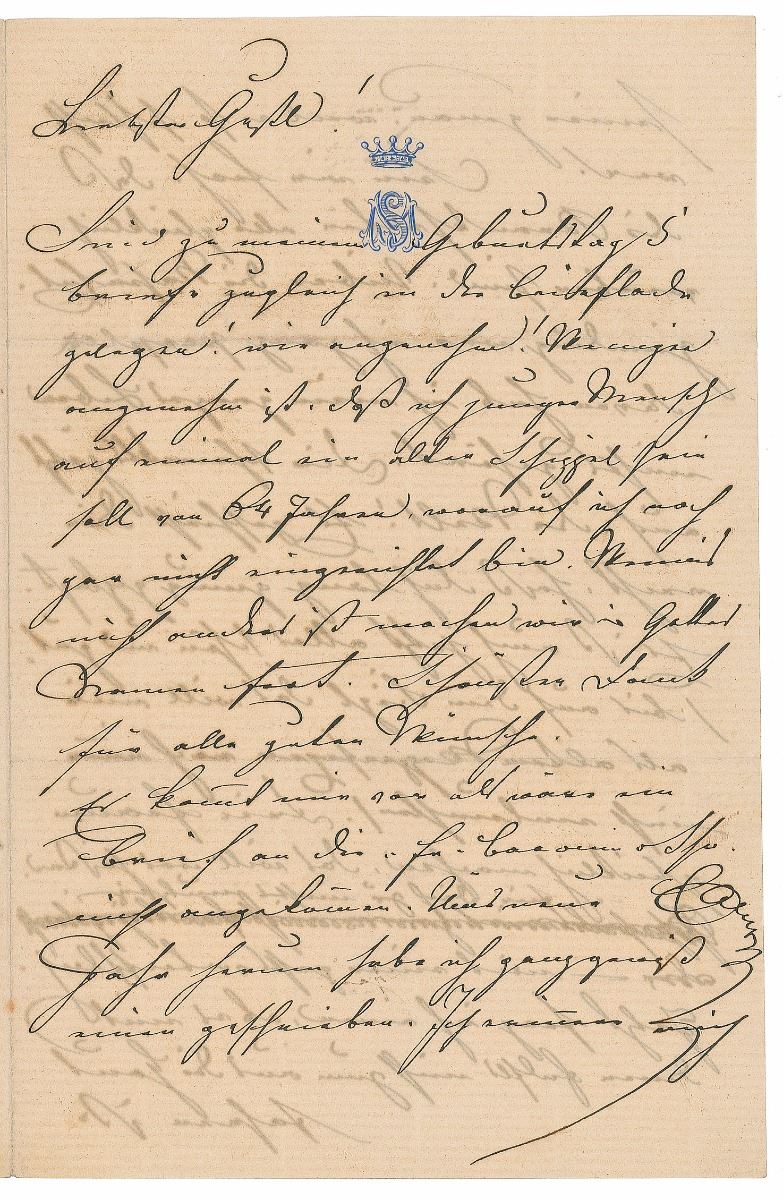 Liebster Gustl!
Sind zu meinem Geburtstag 5
Briefe zugleich in der Brieflade
gelegen! wie angenehm! Weniger
angenehm ist, daß ich junger Mensch
auf einmal ein alter Schippel sein
soll von 64 Jahren, worauf ich noch
gar nicht eingerichtet bin. Wenns
nicht anders ist machen wir in Gottes
Namen fort. Schönsten Dank
für alle guten Wünsche.
Es kom̄t mir vor als wäre ein
Brief an die Fr. Baronin
nicht angekom̄en. Ums neue
Jahr herum habe ich ganz gewiß
einen geschrieben. Ich erin̄ere mich